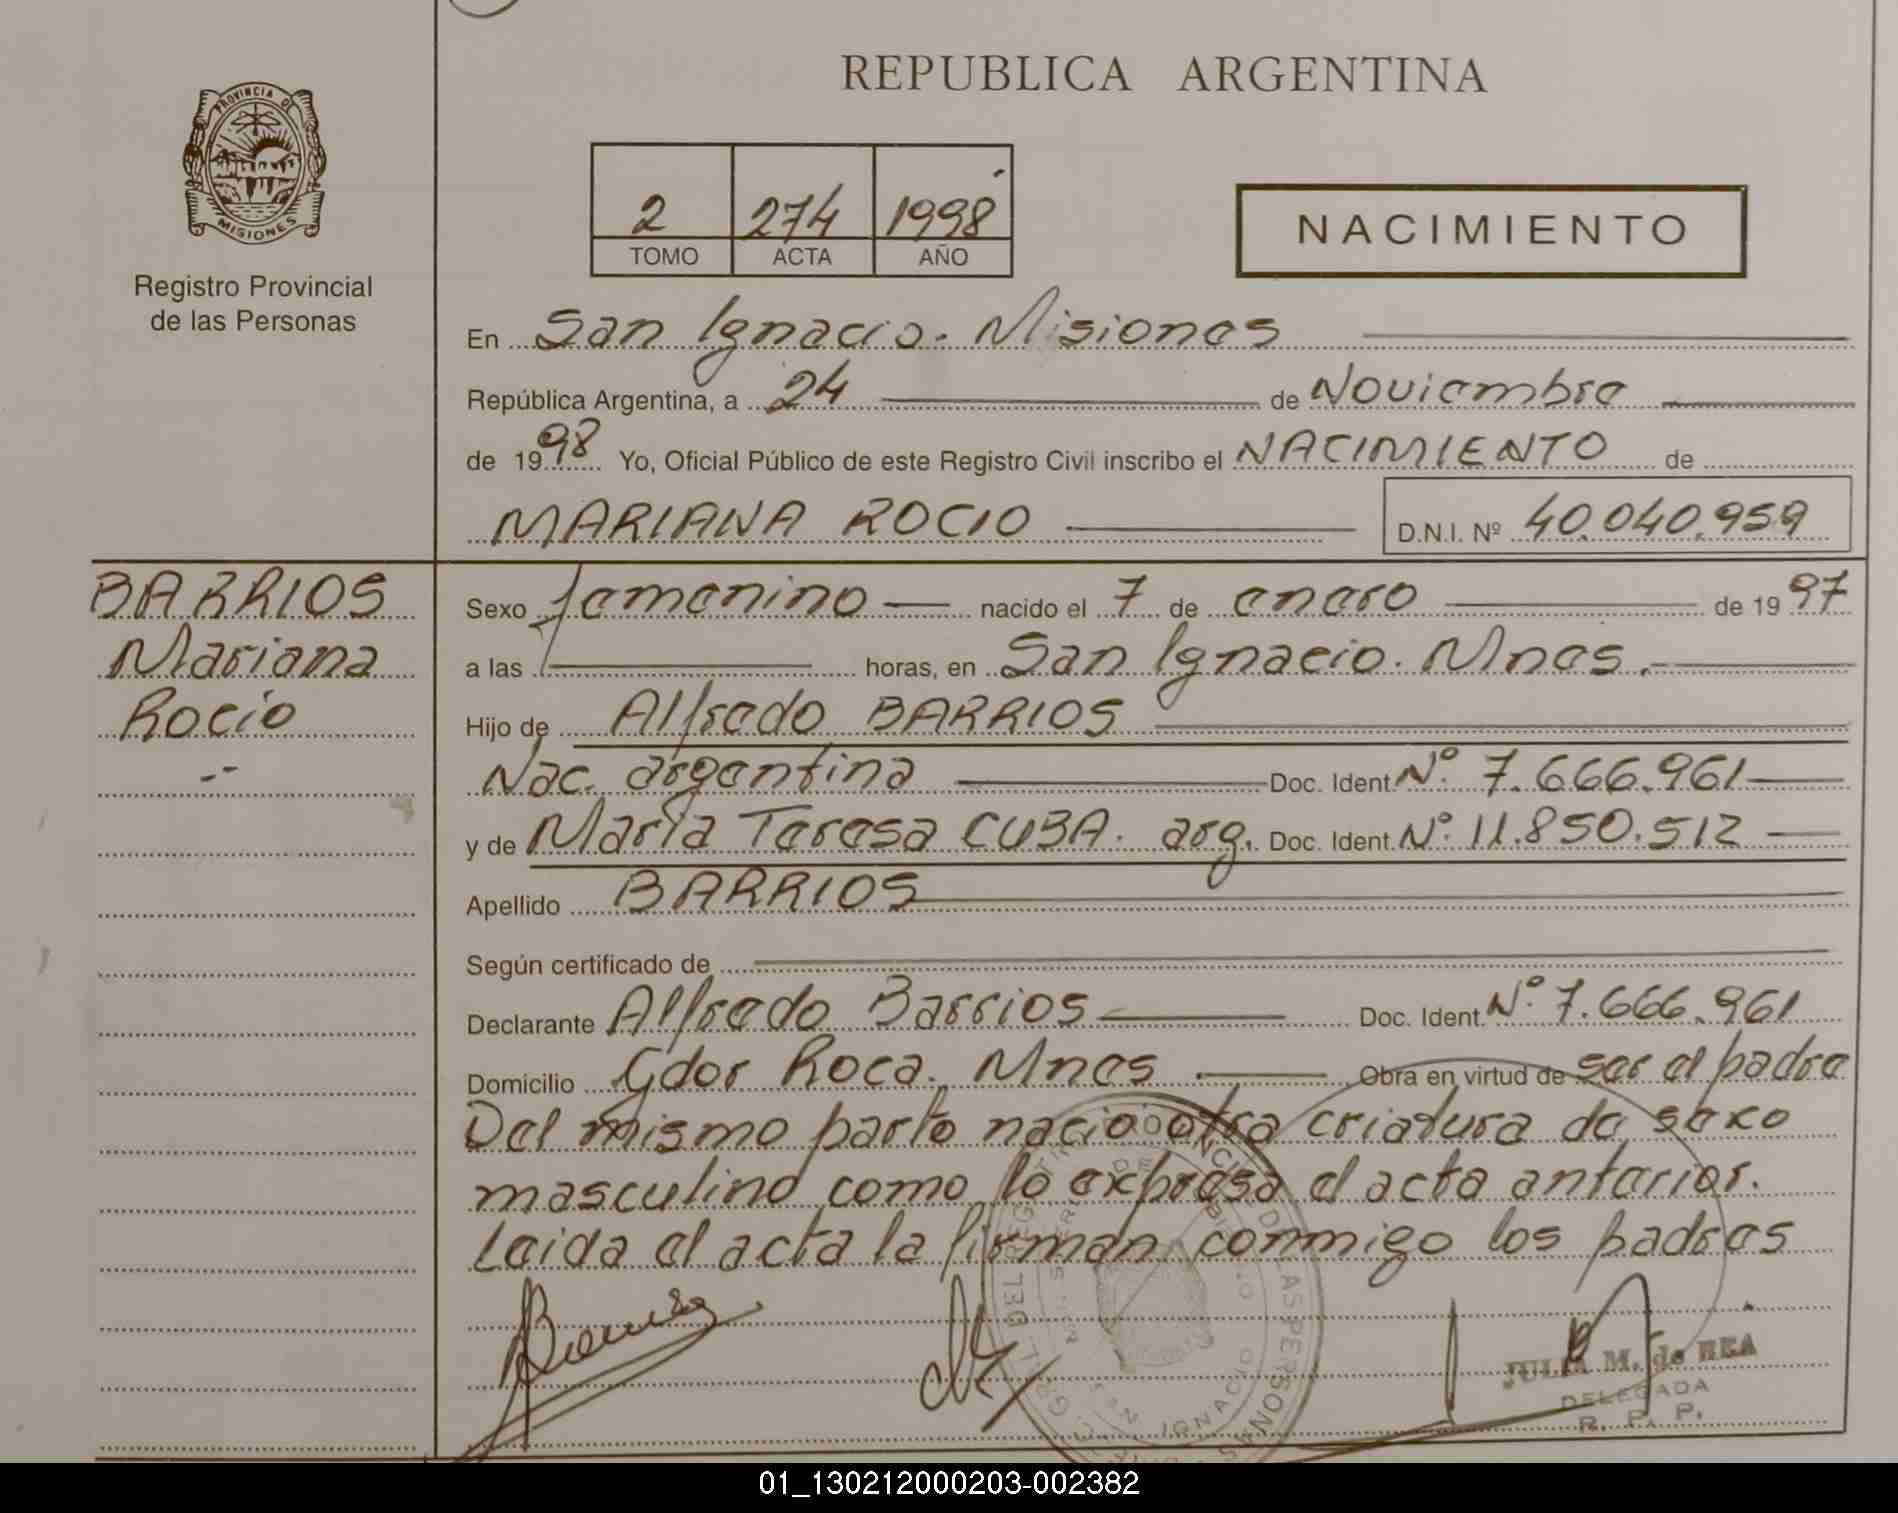 REPUBLICA ARGENTINA
PROVINCIA D
MISIONES
Registro Provincial
de las Personas
2 274 1998
TOMO ACTA AÑO
NACIMIENTO
En San Ignacio. Misiones
República Argentina, a 24 de Noviembre
de 1998 Yo, Oficial Público de este Registro Civil inscribo el NACIMIENTO de
MARIANA ROCIO D.N.I. Nº 40.040.959
BARRIOS
Mariana
Rocio
Sexo femenino nacido el 7 de enero de 1997
a las horas, en San Ignacio. Mnes.
Hijo de Alfredo BARRIOS
Nac. argentina Doc. Ident. Nº 7.666.961
y de María Teresa CUBA. arg. Doc. Ident. Nº 11.850.512
Apellido BARRIOS
Según certificado de
Declarante Alfredo Barrios Doc. Ident. Nº 7.666.961
Domicilio Gdor Roca. Mnes Obra en virtud de ser el padre
Del mismo parto nacio otra criatura de sexo
masculino como lo expresa el acta anterior.
Leida el acta la firman conmigo los padres
JULIA M. de REA
DELEGADA
R. P. P.
SAN IGNACIO
01_130212000203-002382